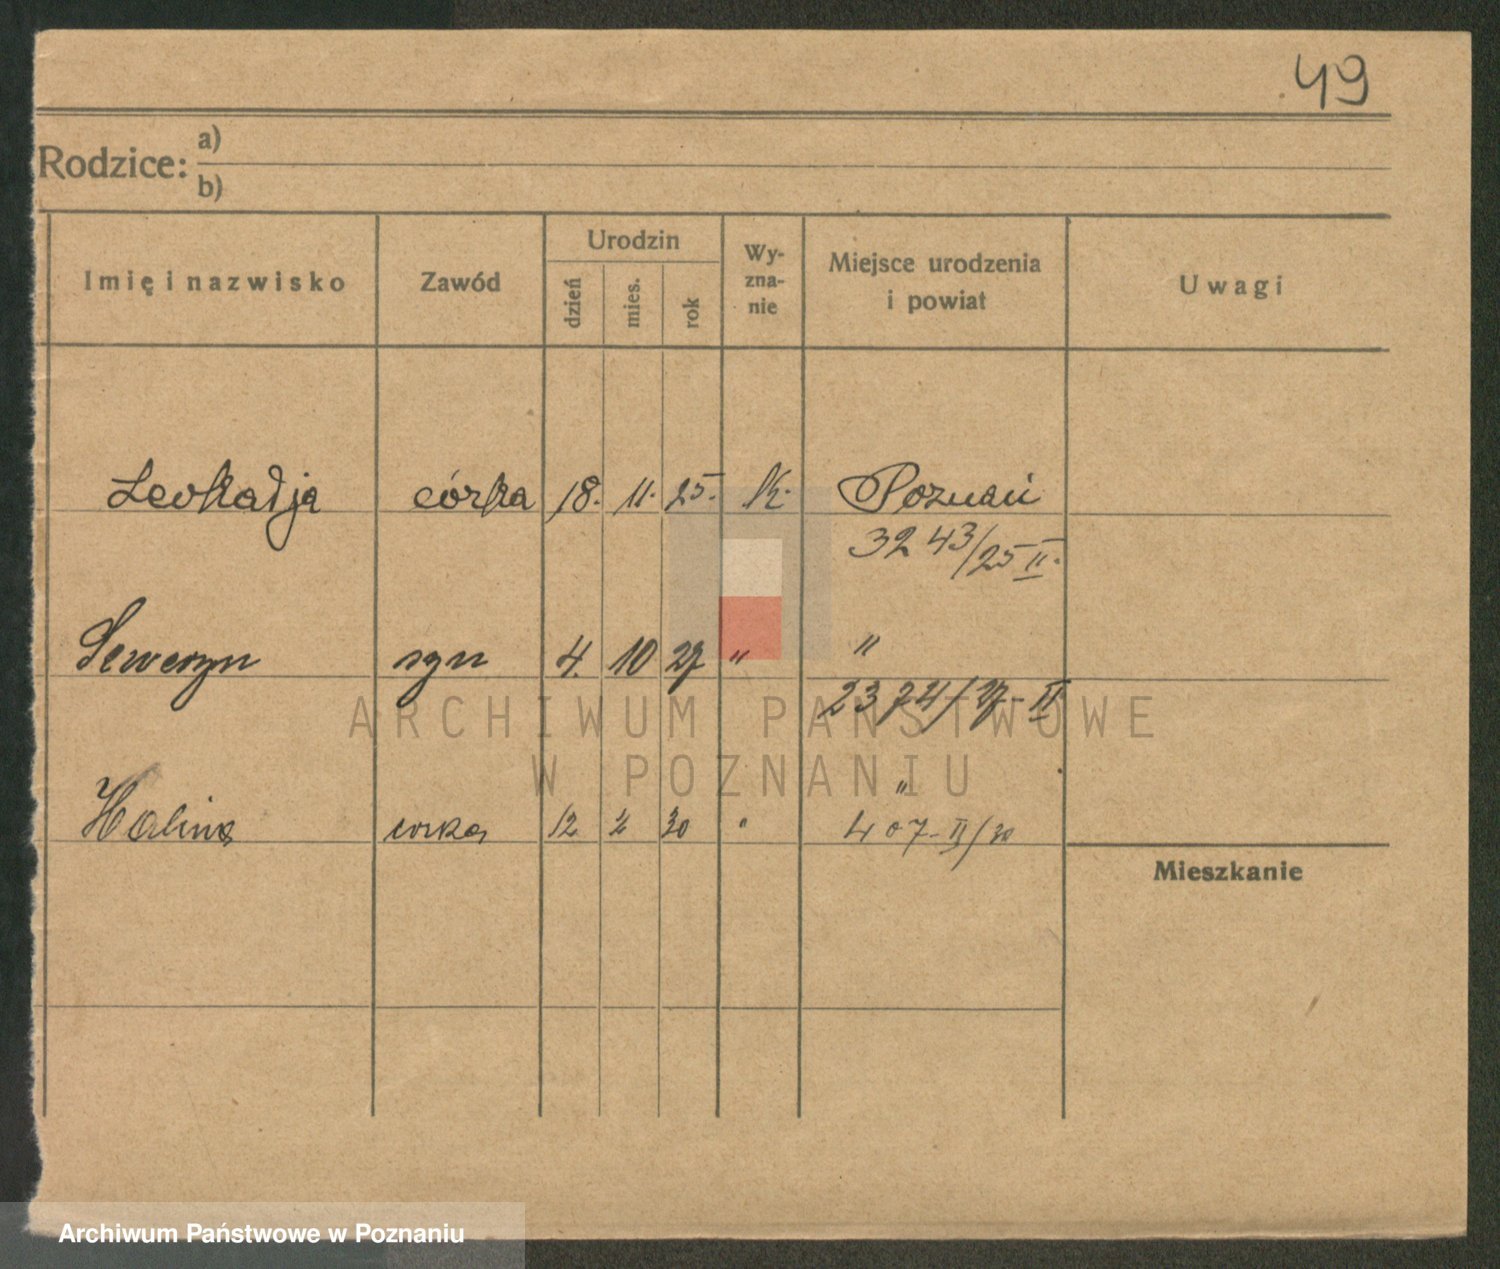 49
Rodzice: a)
b)
Imię i nazwisko Zawód Urodzin dzień mies. rok Wy-zna-nie Miejsce urodzenia i powiat Uwagi
Leokadja córka 18. 11. 25. K. Poznań
3243/25 II.
Seweryn syn 4. 10 27 " "
2374/27-II
"
Halina córka 12 30 " 407-II/30
Mieszkanie
ARCHIWUM PAŃSTWOWE
W POZNANIU
Archiwum Państwowe w Poznaniu